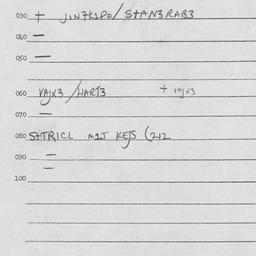 030 + JON7K1PO/STAN3RAB3
040 —
050 —
060 VAJX3/HART3 + VAJX3
070 —
080 S+TRICL M1T KEJS (212
090 =
100